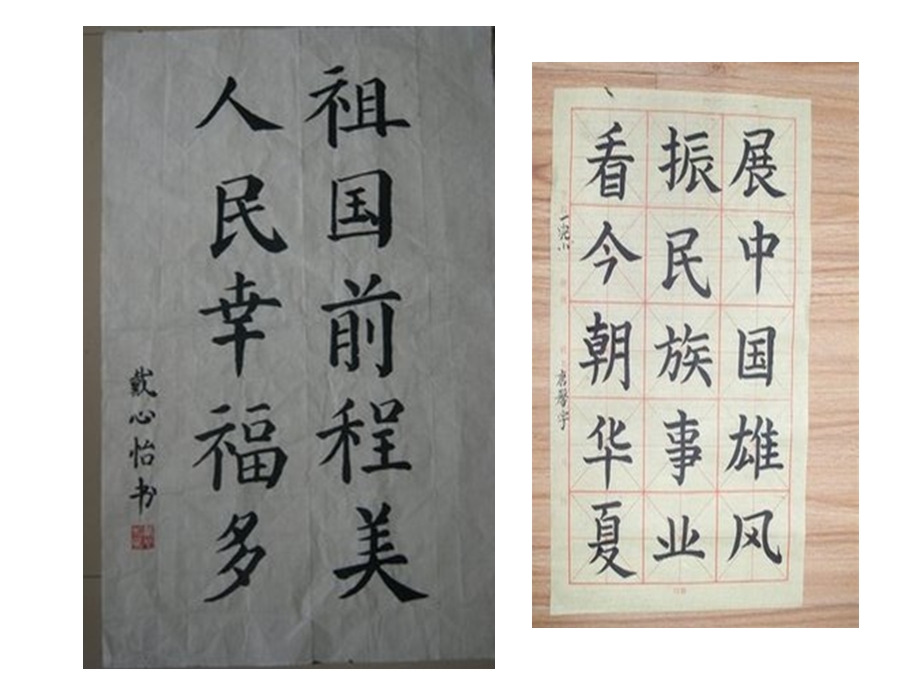 祖国前程美
人民幸福多
戴心怡书
展中国雄风
振民族事业
看今朝华夏
一完小
唐馨宇